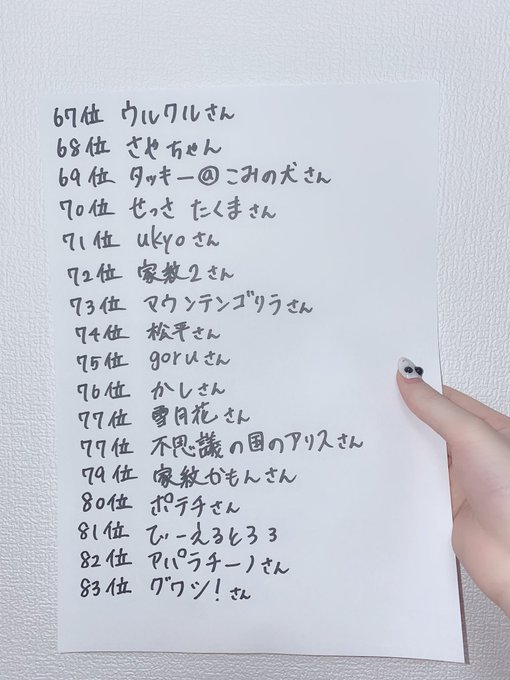 67位 ウルクルさん
68位 さやちゃん
69位 タッキー@こみの犬さん
70位 せっさ たくまさん
71位 ukyoさん
72位 家教2さん
73位 マウンテンゴリラさん
74位 松平さん
75位 goruさん
76位 かしさん
77位 雪月花さん
77位 不思議の国のアリスさん
79位 家紋かもんさん
80位 ポテチさん
81位 びーえるとろろ
82位 アパラチーノさん
83位 グワシ!さん